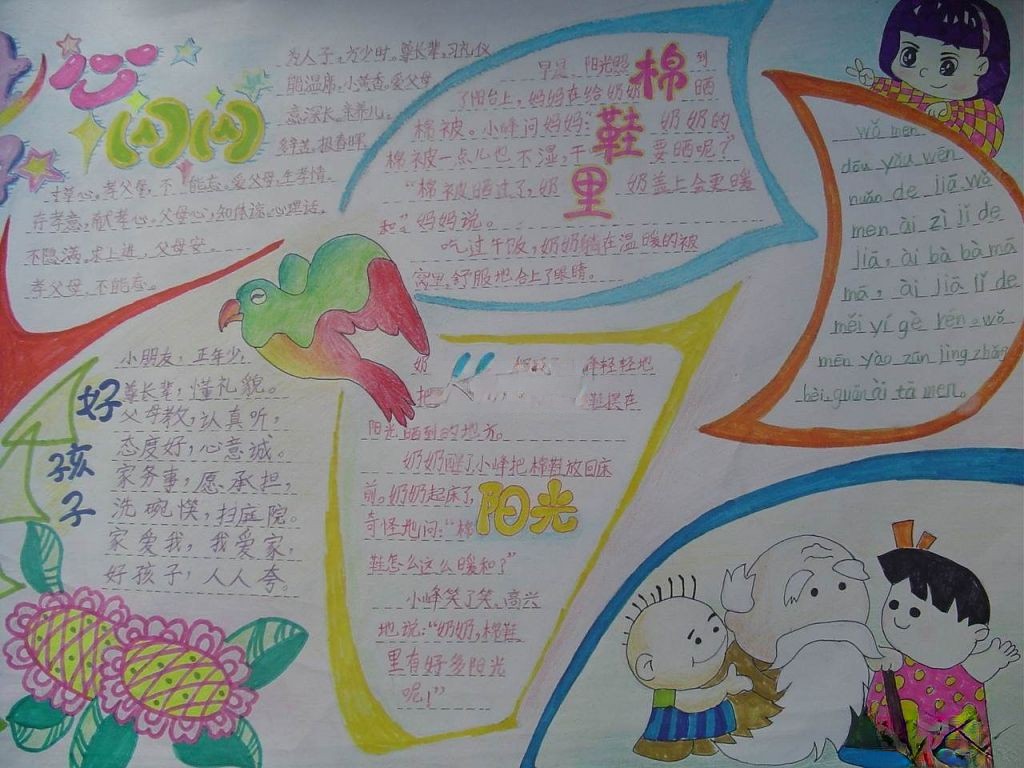 心
闪闪
为人子,方少时。尊长辈,习礼仪
能温席,小黄香。爱父母
意深长。亲养儿,
报春晖。
孝父母,不能忘。爱父母,生孝情。
存孝意,献孝心。父母心,知体谅。心理话。
不隐满。求上进,父母安。
孝父母,不能忘。
棉鞋里
早晨,阳光照到
了阳台上,妈妈在给奶奶晒
棉被。小峰问妈妈:"奶奶的
棉被一点儿也不湿,干要晒呢?"
"棉被晒过了,奶奶盖上会更暖
和",妈妈说。
吃过午饭,奶奶躺在温暖的被
窝里,舒服地合上了眼睛。
阳光
奶峰轻轻地
把鞋摆在
阳光晒到的地方。
奶奶醒了,小峰把棉鞋放回床
前。奶奶起床了,
奇怪地问:"棉
鞋怎么这么暖和?"
小峰笑了笑,高兴
地说:"奶奶,棉鞋
里有好多阳光
呢!"
wǒ men
dōu yǒu wēn
nuǎn de jiā wǒ
men ài zì jǐ de
jiā, ài bà bà mā
mā, ài jiā lǐ de
měi yí gè rén. wǒ
mēn yào zūn jìng zhǎng
bèi guān ài tā men.
好孩子
小朋友,正年少。
尊长辈,懂礼貌。
父母教,认真听,
态度好,心意诚。
家务事,愿承担,
洗碗筷,扫庭院。
家爱我,我爱家,
好孩子,人人夸。